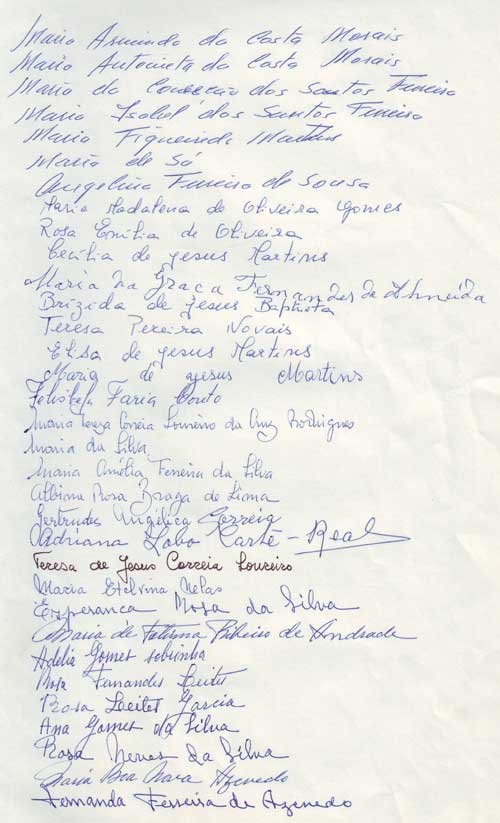 Maria Arminda da Costa Morais
Maria Antonieta da Costa Morais
Maria da Conceição dos Santos Ferreira
Maria Isabel dos Santos Ferreira
Maria Figueiredo Martins
Maria de Sá
Angelina Ferreira de Sousa
Maria Madalena de Oliveira Gomes
Rosa Emília de Oliveira
Cecília de Jesus Martins
Maria na Graça Fernandes de Almeida
Brizida de Jesus Baptista
Teresa Pereira Novais
Elisa de Jesus Martins
Maria de Jesus Martins
Felisbela Faria Couto
Maria Tereza Correia Loureiro da Cruz Rodrigues
Maria da Silva
Maria Amélia Ferreira da Silva
Albina Rosa Braga de Lima
Gertrudes Angélica Correia
Adriana Lobo Corte-Real
Teresa de Jesus Correia Loureiro
Maria Etelvina Nelas
Esperanca Rosa da Silva
Maria de Fatima Ribeiro de Andrade
Adélia Gomes sobrinha
Rosa Fernandes Leite
Rosa Leites Garcia
Ana Gomes da Silva
Rosa Neves da Silva
Maria Nava Azevedo
Fernanda Ferreira de Azevedo